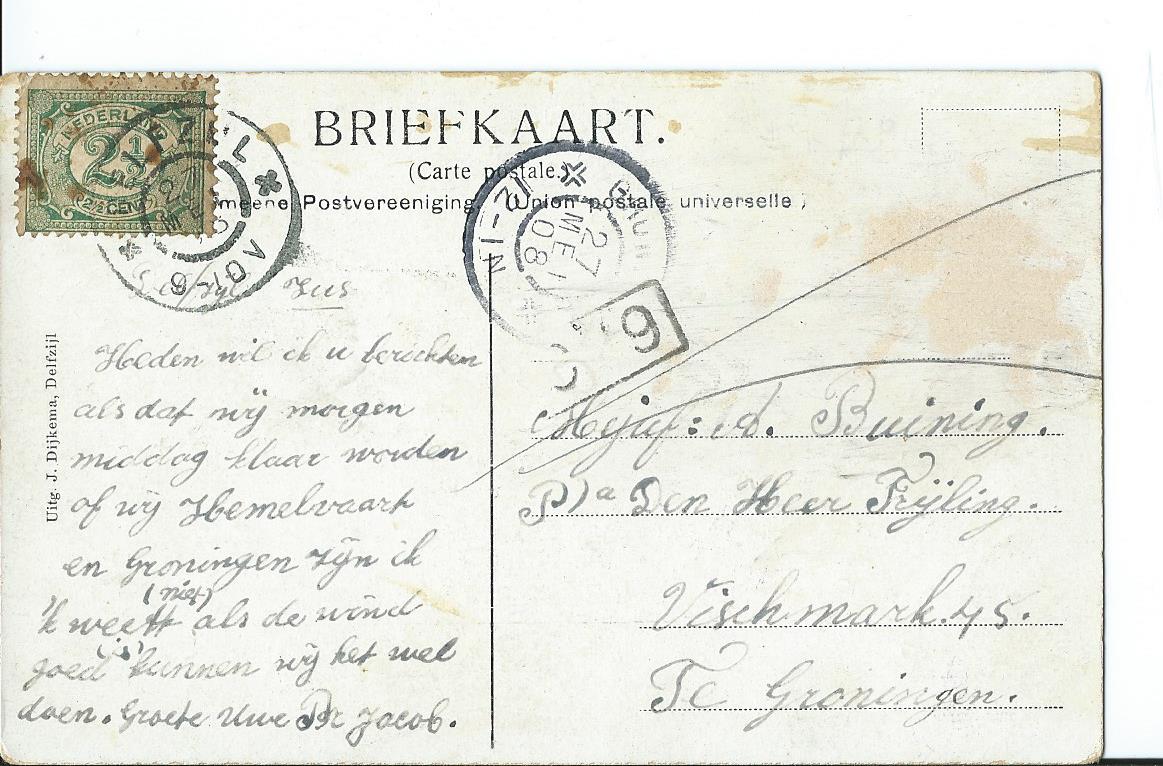 BRIEFKAART.
(Carte postale.)
Postvereeniging (Union postale universelle)
NEDERLAND
2½
(2½ CENT)
27 MEI 08
N 12-1
9
Uitg. J. Dijkema, Delfzijl
Zus
Heden wil ik u berichten
als dat wij morgen
middag klaar worden
of wij Hemelvaart
en Groningen zijn ik
(niet)
'k weett als de wind
goed is kunnen wij het wel
doen. Groete Uwe Br Jacob.
Mejuf: A. Buining.
P/a Den Heer Frijling.
Vischmark. 45.
Te Groningen.